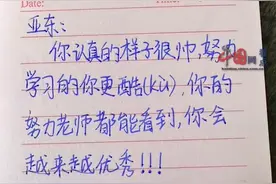 Date:
亚东:
你认真的样子很帅,努力
学习的你更酷(kù),你的
努力老师都能看到,你会
越来越优秀!!!